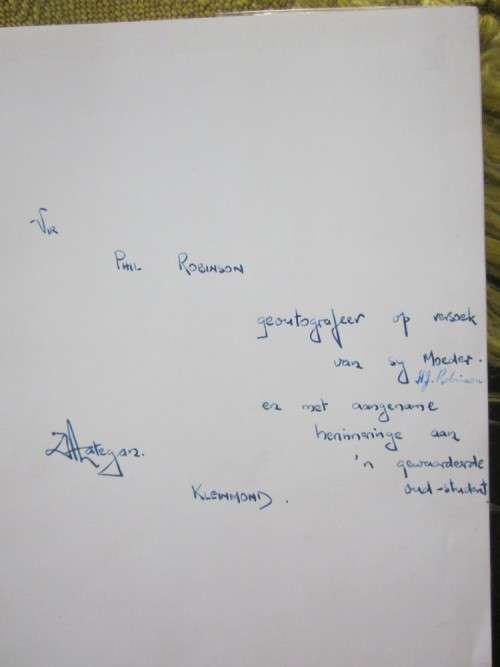 Vir
PHIL ROBINSON
geoutografeer op versoek
van sy Moeder.
H.J. Robinson
en met aangename
herinneringe aan
'n gewaardeerde
oud-student
Kategan.
KLEINMOND.